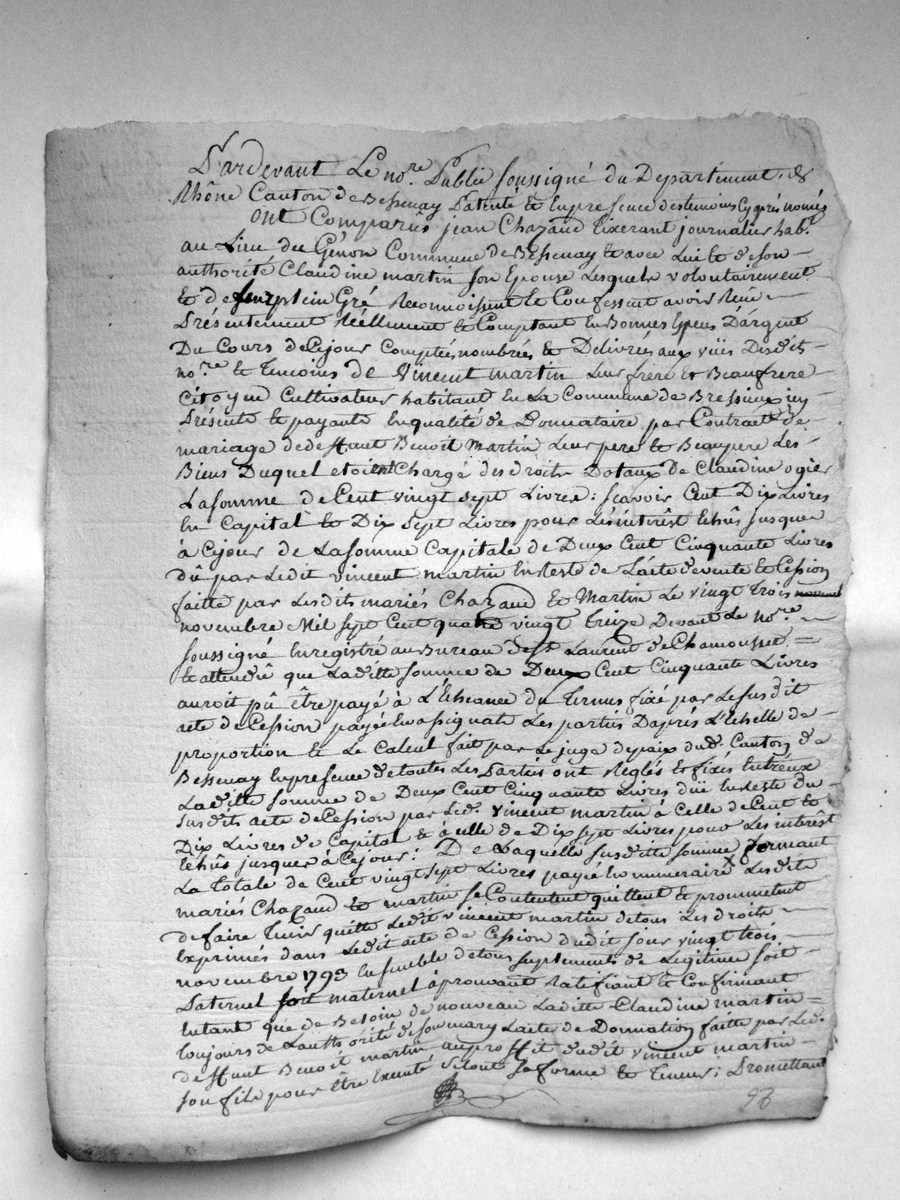 Pardevant Le no.re Public soussigné du Departement de
Rhône Canton de Bessenay Patenté & en presence des temoins cy après només
ont Comparûs jean Chazaud tixerant journalier hab.t
au Lieu du Génon Commune de Bessenay & avec Lui & de son
authorité Claudine martin son Epouse Lesquels volontairement
& de Leur plein Gré Reconnoissent & Confessent avoir Reçu
Présentement Réellement & Comptant En Bonnes Espèces D'argent
Du Cours de Cejour Comptées nombrées & Délivrées aux vües Desdits
no.re & temoins de Vincent martin Leur frère & Beaufrere
citoyen Cultivateur habitant En La Commune de Bressieux icy
Présent & payant En qualité de Donnataire par Contrait de
mariage de deffunt Benoit Martin Leur pere & Beaupere Les
Biens Duquel etoient Chargé des Droits Dotaux de Claudine ogier
La somme de Cent vingt sept Livres : sçavoir Cent Dix Livres
En Capital & Dix sept Livres pour Les interêst Echûs jusques
à Cejour de La somme Capitale de Deux Cent Cinquante Livres
dû par Ledit vincent martin En Reste de L'acte de vente & Cession
faitte par Lesdits mariés Chazaud & Martin Le vingt trois
novembre Mil sept Cent quatre vingt treize Devant Le no.re
soussigné Enregistré au Bureau de S.t Laurent de Chamousset =
& attendû que La ditte somme de Deux Cent Cinquante Livres
auroit pû être payé à L'Echeance du Terme fixé par Le susdit
acte de Cession payée En assignats Les parties D'après L'Echelle de
proportion & Le Calcul fait par Le juge de paix dud. Canton de
Bessenay En presence de toutes Les Parties ont Reglés & fixés Entr'eux
La ditte somme de Deux Cent Cinquante Livres düe En Reste du
susdits acte de Cession par Led. vincent martin à Celle de Cent &
Dix Livres de Capital & à celle de Dix sept Livres pour Les interêst
Echûs jusques à Cejour : De Laquelle susditte somme formant
La totale de Cent vingt sept Livres payée En numeraire x Lesdits
mariés Chazaud & martin se Contentent quittent & promettent
de faire tenir quitte Ledit vincent martin de tous Les droits
Exprimés dans Ledit acte de Cession dudit jour vingt trois
novembre 1793 Ensemble de tous suplements de Legitime soit
Paternel soit maternel aprouvant Ratifiant & Confirmant
En tant que de Besoin de nouveau Laditte Claudine martin =
toujours de L'authorité de son mary L'acte de Donnation faitte par Led.
deffunt Benoit martin au proffit dudit vincent martin
son fils pour être Executé selont sa forme & teneur ; Promettant